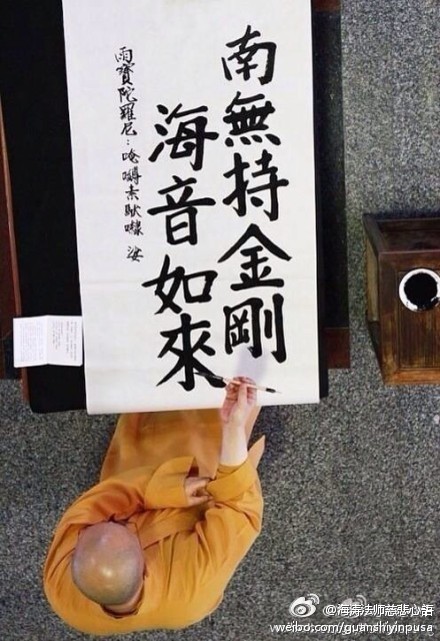 南無持金剛
海音如來
雨寶陀羅尼：唵嚩素馱㘑 娑
@海涛法师慈悲心语
weibo.com/guanshiyinpusa